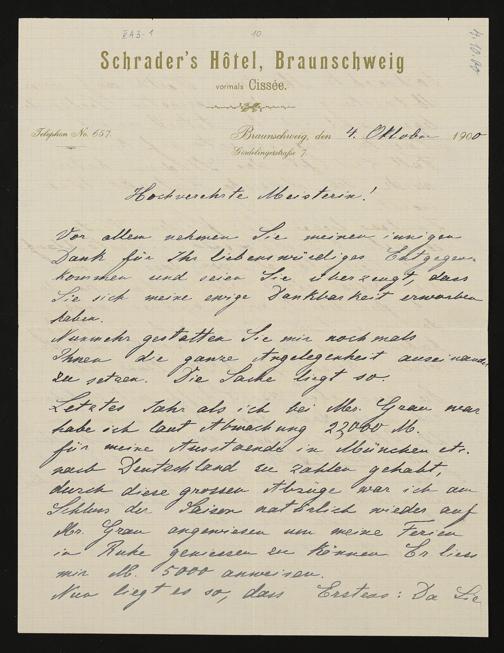 EA3-1
10.
4.10.00
Schrader's Hôtel, Braunschweig
vormals Cissée.
Telephon No. 657.
Braunschweig, den 4. Oktober 1900
Gördelingerstraße 7.
Hochverehrte Meisterin!
Vor allem nehmen Sie meinen innigen
Dank für Ihr liebenswürdiges Entgegen-
kommen und seien Sie überzeugt, dass
Sie sich meine ewige Dankbarkeit erworben
haben.
Nunmehr gestatten Sie mir nochmals
Ihnen die ganze Angelegenheit auseinander
zu setzen. Die Sache liegt so.
Letztes Jahr als ich bei Mr. Grau war
habe ich laut Abmachung 22,000 M.
für meine Ausstaende in München etc.
nach Deutschland zu zahlen gehabt,
durch diese grossen Abzüge war ich am
Schluss der Saison natürlich wieder auf
Mr. Grau angewiesen um meine Ferien
in Ruhe geniessen zu können Er liess
mir M. 5000 anweisen.
Nun liegt es so, dass Erstens: Da Sie